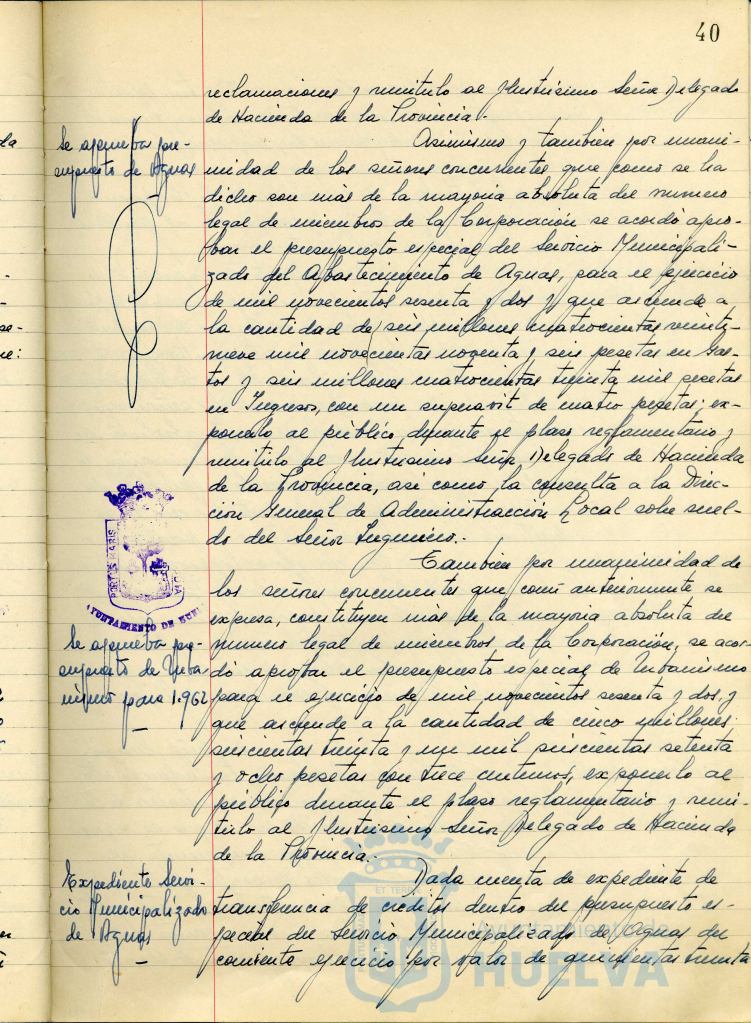 40
reclamaciones y remitirlo al Ilustrísimo Señor Delegado
de Hacienda de la Provincia.
Se aprueba pre-
supuesto de Aguas
—
Asimismo y tambien por unani-
midad de los señores concurrentes que como se ha
dicho son más de la mayoria absoluta del numero
legal de miembros de la Corporación se acordó apro-
bar el presupuesto especial del Servicio Municipali-
zado del Abastecimiento de Aguas, para el ejercicio
de mil novecientos sesenta y dos y que asciende a
la cantidad de seis millones cuatrocientas veinti-
nueve mil novecientas noventa y seis pesetas en Gas-
tos y seis millones cuatrocientas treinta mil pesetas
en Ingresos, con un superavit de cuatro pesetas; ex-
ponerlo al público durante el plazo reglamentario y
remitirlo al Ilustrisimo Señor Delegado de Hacienda
de la Provincia, así como la consulta a la Direc-
cion General de Administracción Local sobre suel-
do del Señor Ingeniero.
PORTUS MARIS
AYUNTAMIENTO DE HUEL
Se aprueba pre-
supuesto de Urba-
nismo para 1.962
—
Tambien por unanimidad de
los señores concurrentes que como anteriormente se
expresa, constituyen más de la mayoria absoluta del
numero legal de miembros de la Corporación, se acor-
dó aprobar el presupuesto especial de Urbanismo
para el ejercicio de mil novecientos sesenta y dos, y
que asciende a la cantidad de cinco millones
seiscientas treinta y un mil seiscientas setenta
y ocho pesetas con trece centimos, exponerlo al
público durante el plazo reglamentario y remi-
tirlo al Ilustrisimo Señor Delegado de Hacienda
de la Provincia.
Expediente Servi-
cio Municipalizado
de Aguas
—
Dada cuenta de expediente de
transferencia de creditos dentro del presupuesto es-
pecial del Servicio Municipalizado de Aguas del
corriente ejercicio por valor de quinientas treinta
HUELVA